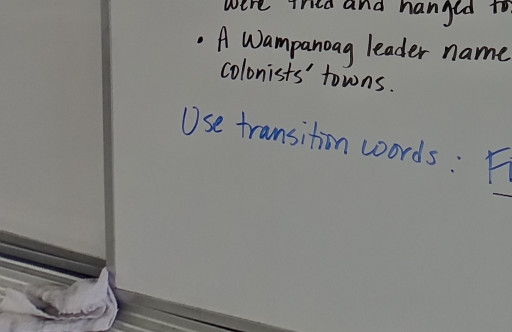 were tried and hanged for
• A Wampanoag leader name
colonists' towns.
Use transition words: Fi